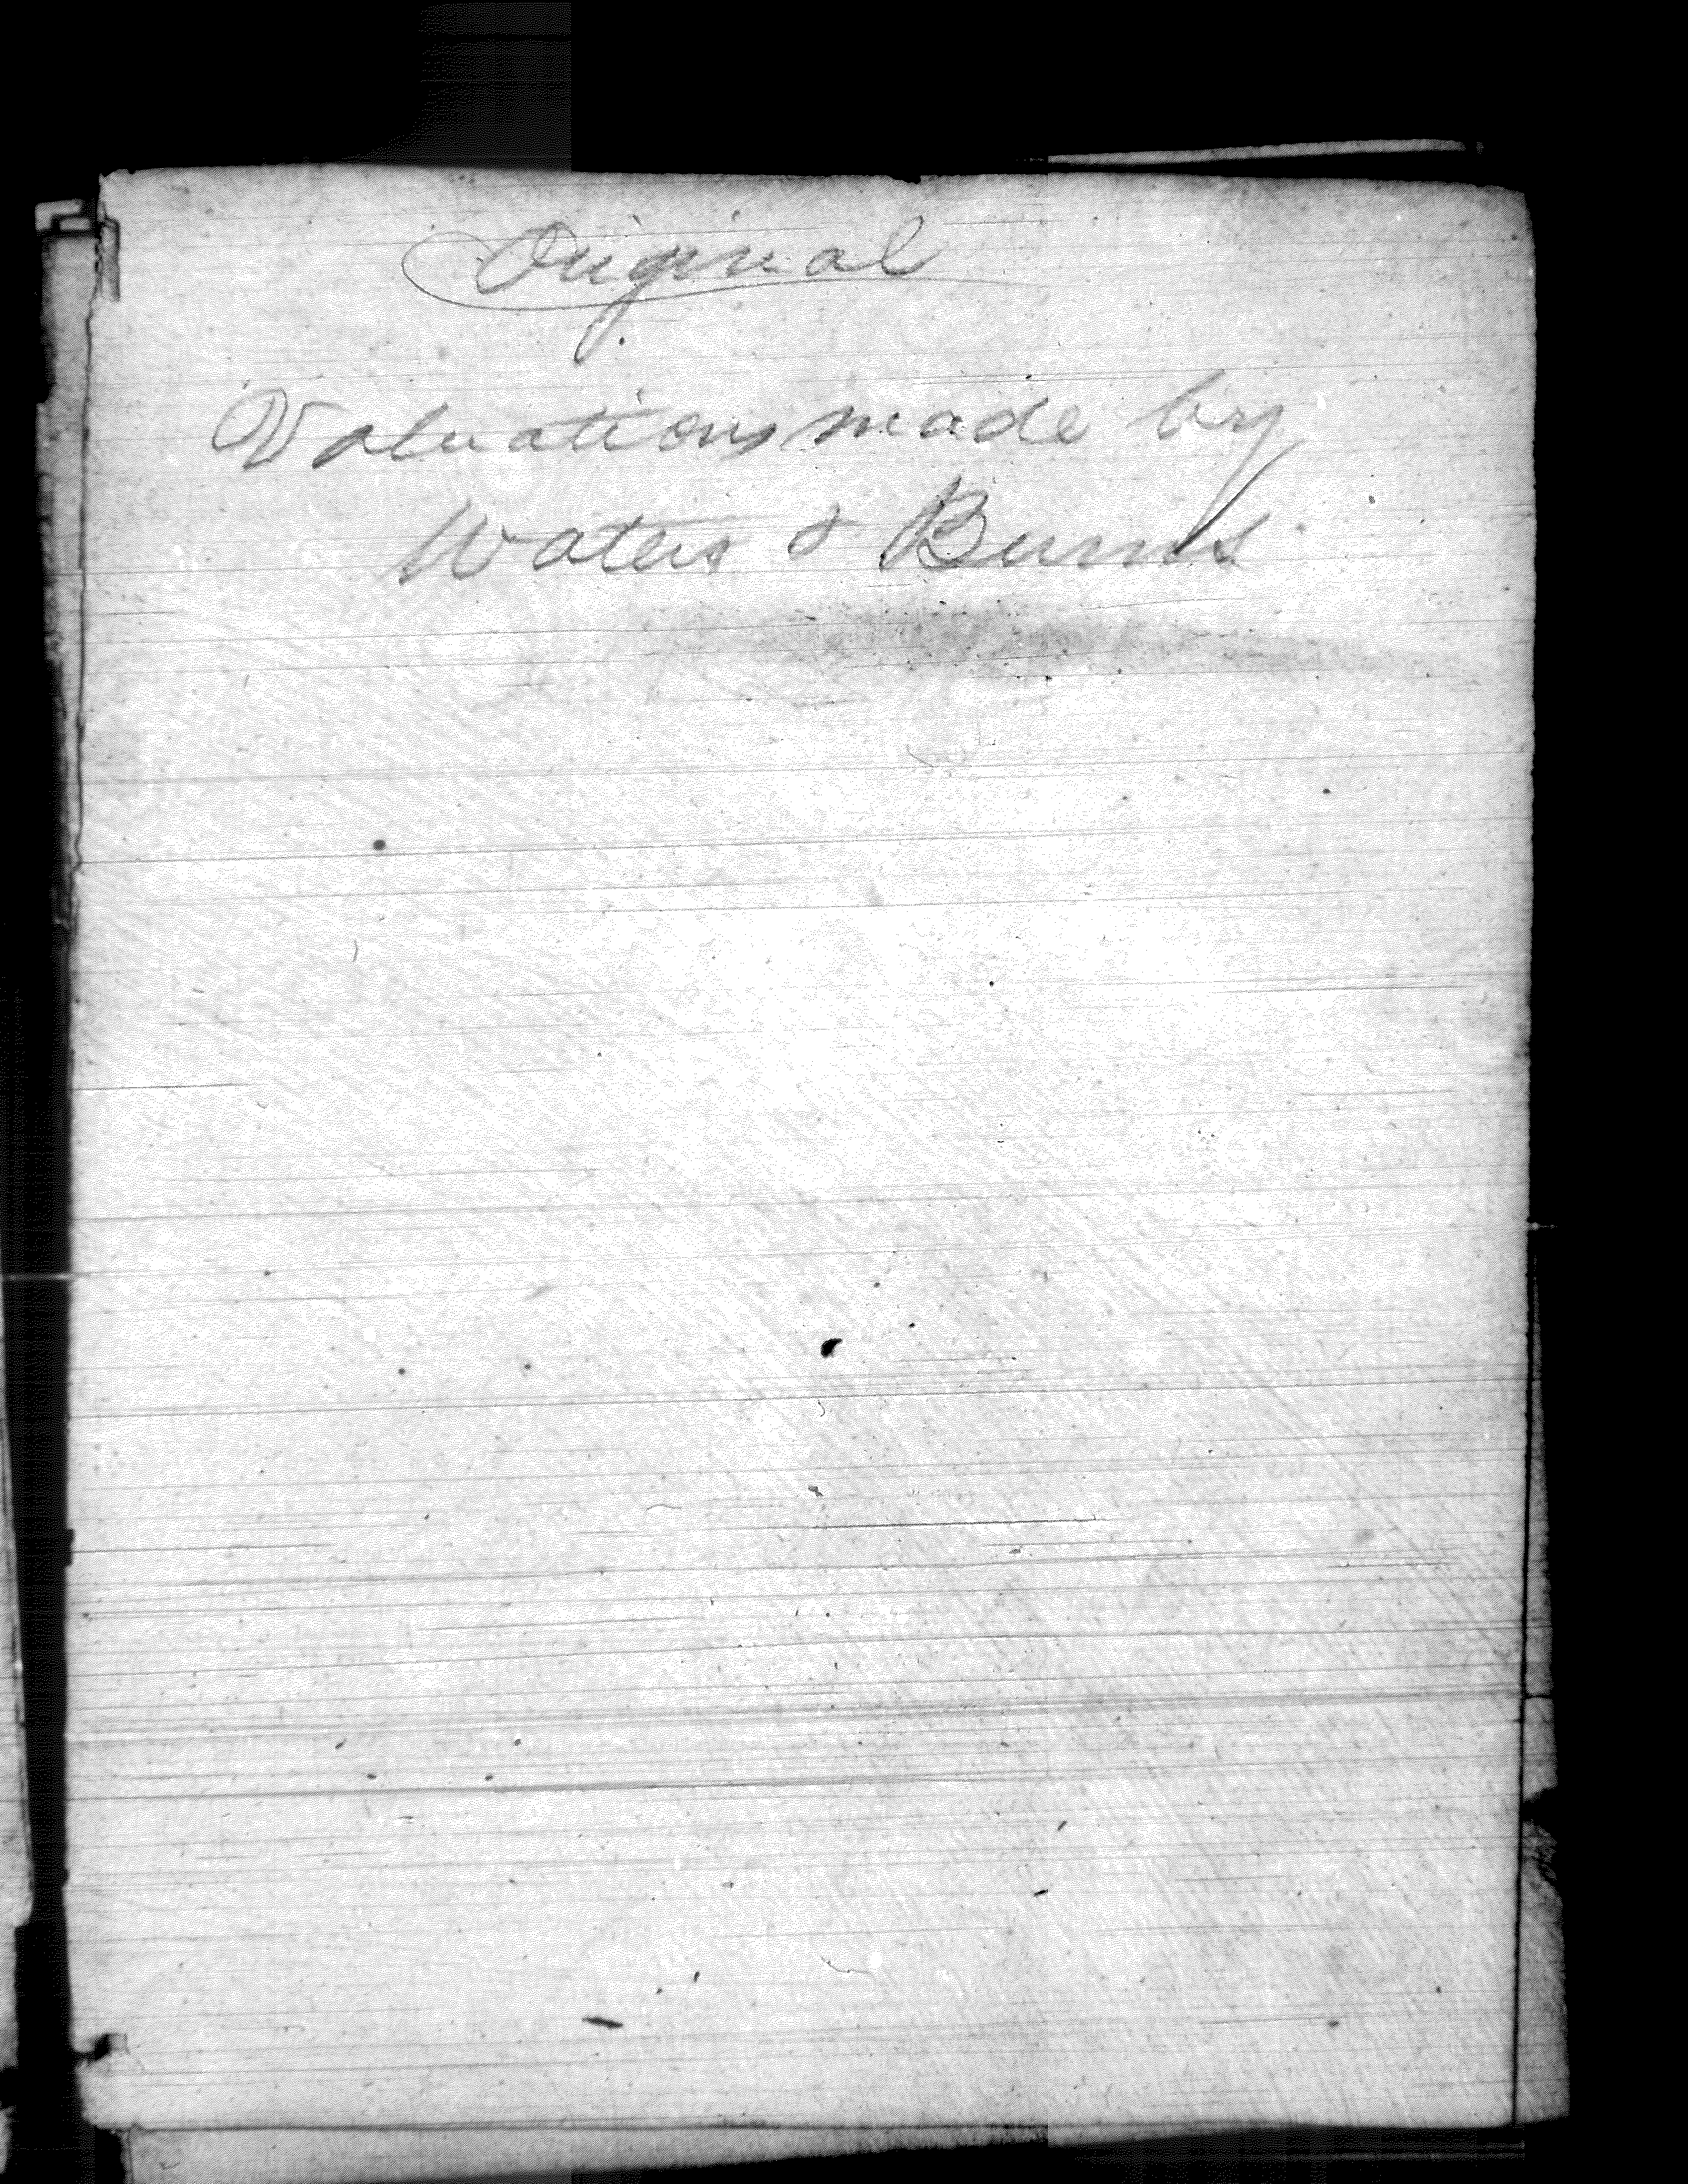 Original
Valuations made by
Waters & Burns